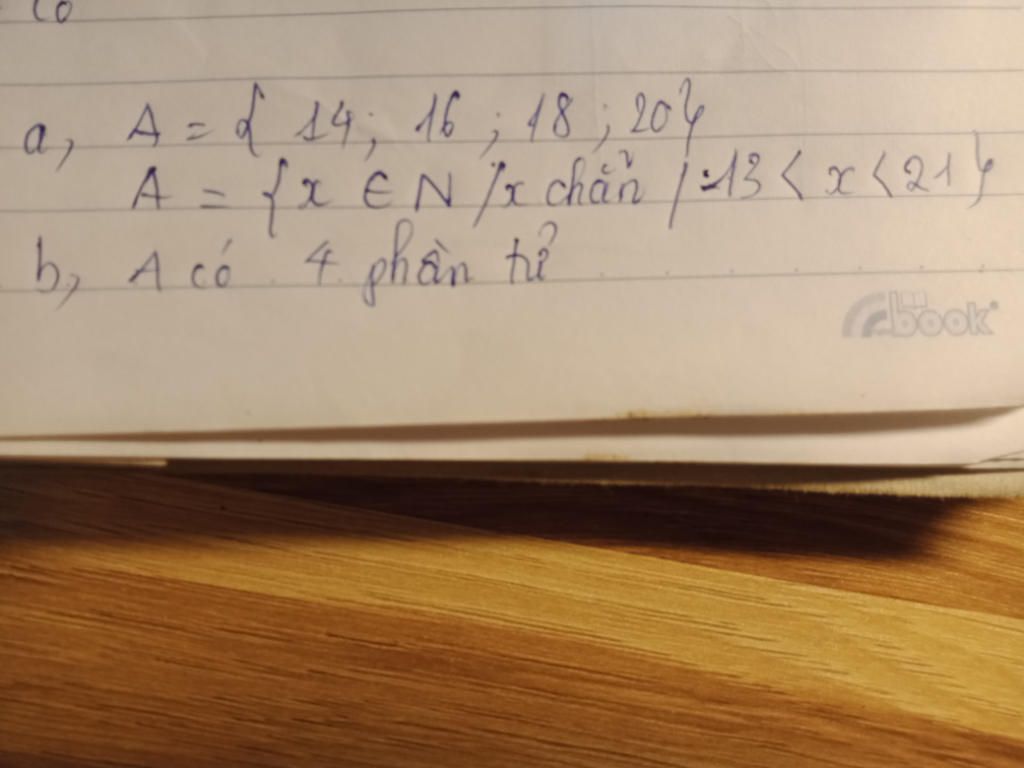 co
a, A = { 14; 16 ; 18 ; 20}
A = {x ∈ N / x chẵn / 13 < x < 21}
b, A có 4 phần tử
book